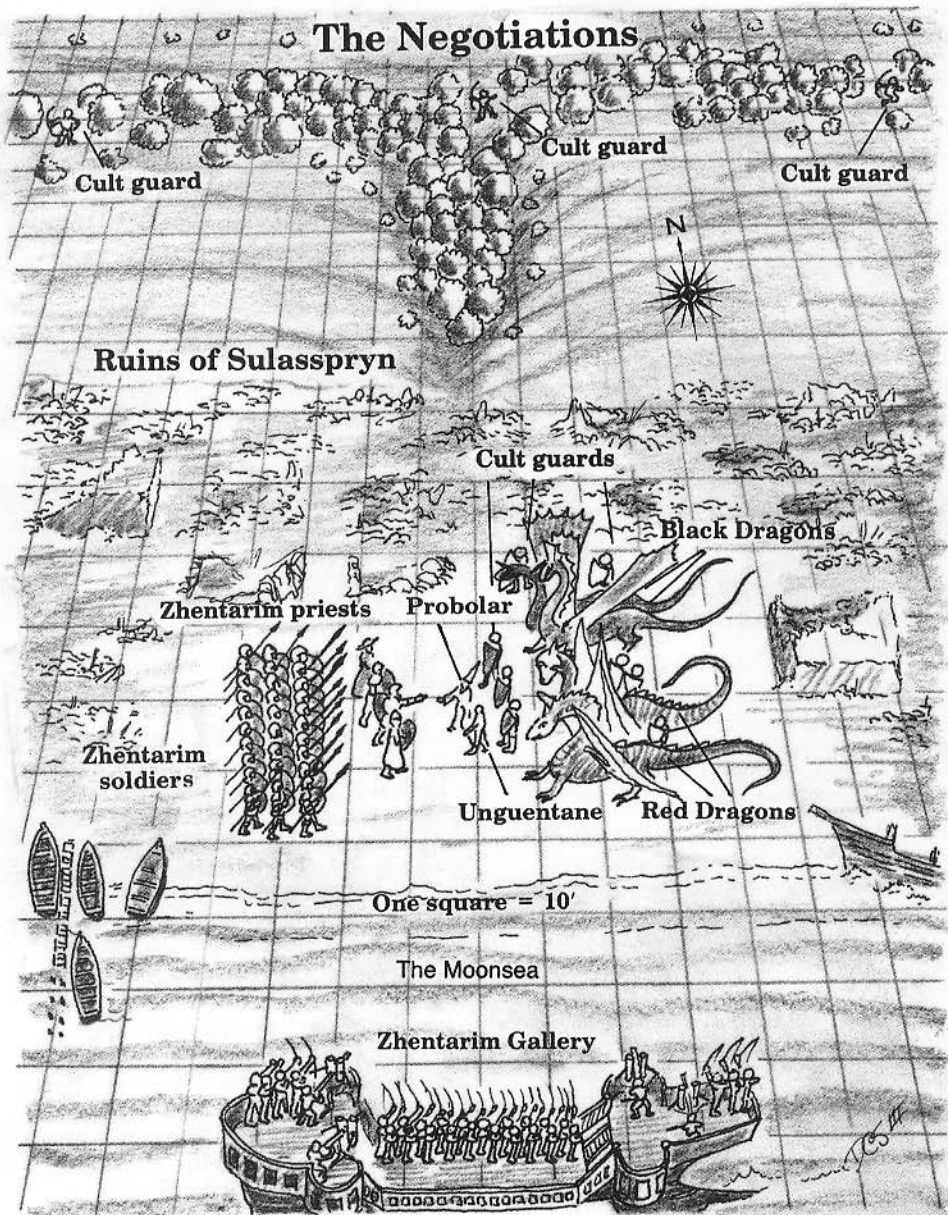 The Negotiations
Cult guard
Cult guard
Cult guard
N
Ruins of Sulasspryn
Cult guards
Black Dragons
Zhentarim priests
Probolar
Zhentarim
soldiers
Unguentane
Red Dragons
One square = 10′
The Moonsea
Zhentarim Gallery